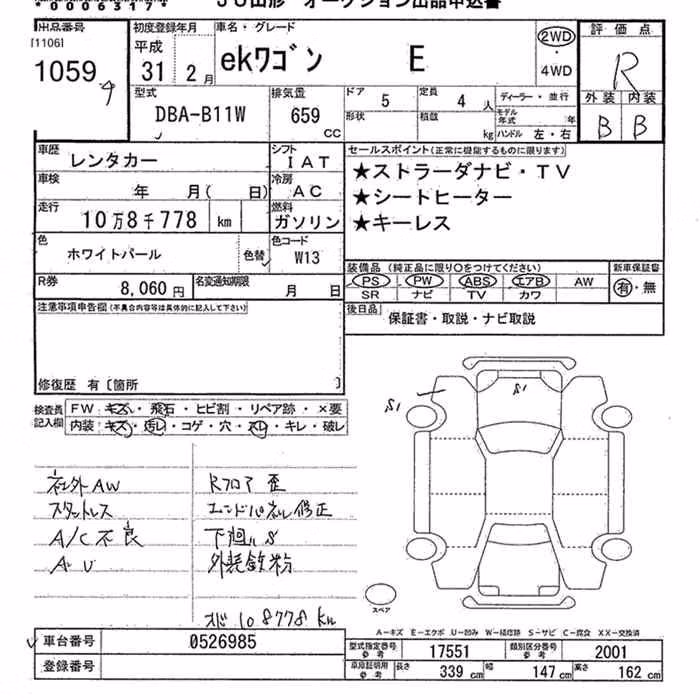 JU山形 オークション出品申込書
出品番号
[1106]
1059
初度登録年月
平成
31年 2月
車名・グレード
ekワゴン E
2WD
・
4WD
評価点
R
外装 内装
B B
型式
DBA-B11W
排気量
659
CC
ドア 5
定員 4人
ディーラー・並行
形状
積載 kg
モデル年式 年
ハンドル 左・右
車歴
レンタカー
シフト
IAT
車検
年 月( 日)
冷房
AC
走行
10万8千778 km
燃料
ガソリン
色
ホワイトパール
色替
色コード
W13
R券
8,060円
名変通知期限
月 日
セールスポイント(正常に機能するものに限ります)
★ストラーダナビ・TV
★シートヒーター
★キーレス
装備品 (純正品に限り○をつけてください)
PS PW ABS エアB AW
SR ナビ TV カワ
新車保証書
有・無
後日品
保証書・取説・ナビ取説
注意事項申告欄(不具合内容等は具体的に記入して下さい)
修復歴 有〔箇所 〕
検査員記入欄
FW・キズ・飛石・ヒビ割・リペア跡・×要
内装・キズ・汚レ・コゲ・穴・スレ・キレ・破レ
社外AW
スタットレス
A/C不良
AU
Rフロア歪
エンドパネル修正
下廻りS
外装鉄粉
オド 108778km
S1
S1
スペア
A-キズ E-エクボ U-凹み W-補修跡 S-サビ C-腐食 XX-交換済
車台番号
0526985
登録番号
型式指定番号 参考
17551
類別区分番号 参考
2001
車庫証明用 参考
長さ 339 cm
幅 147 cm
高さ 162 cm